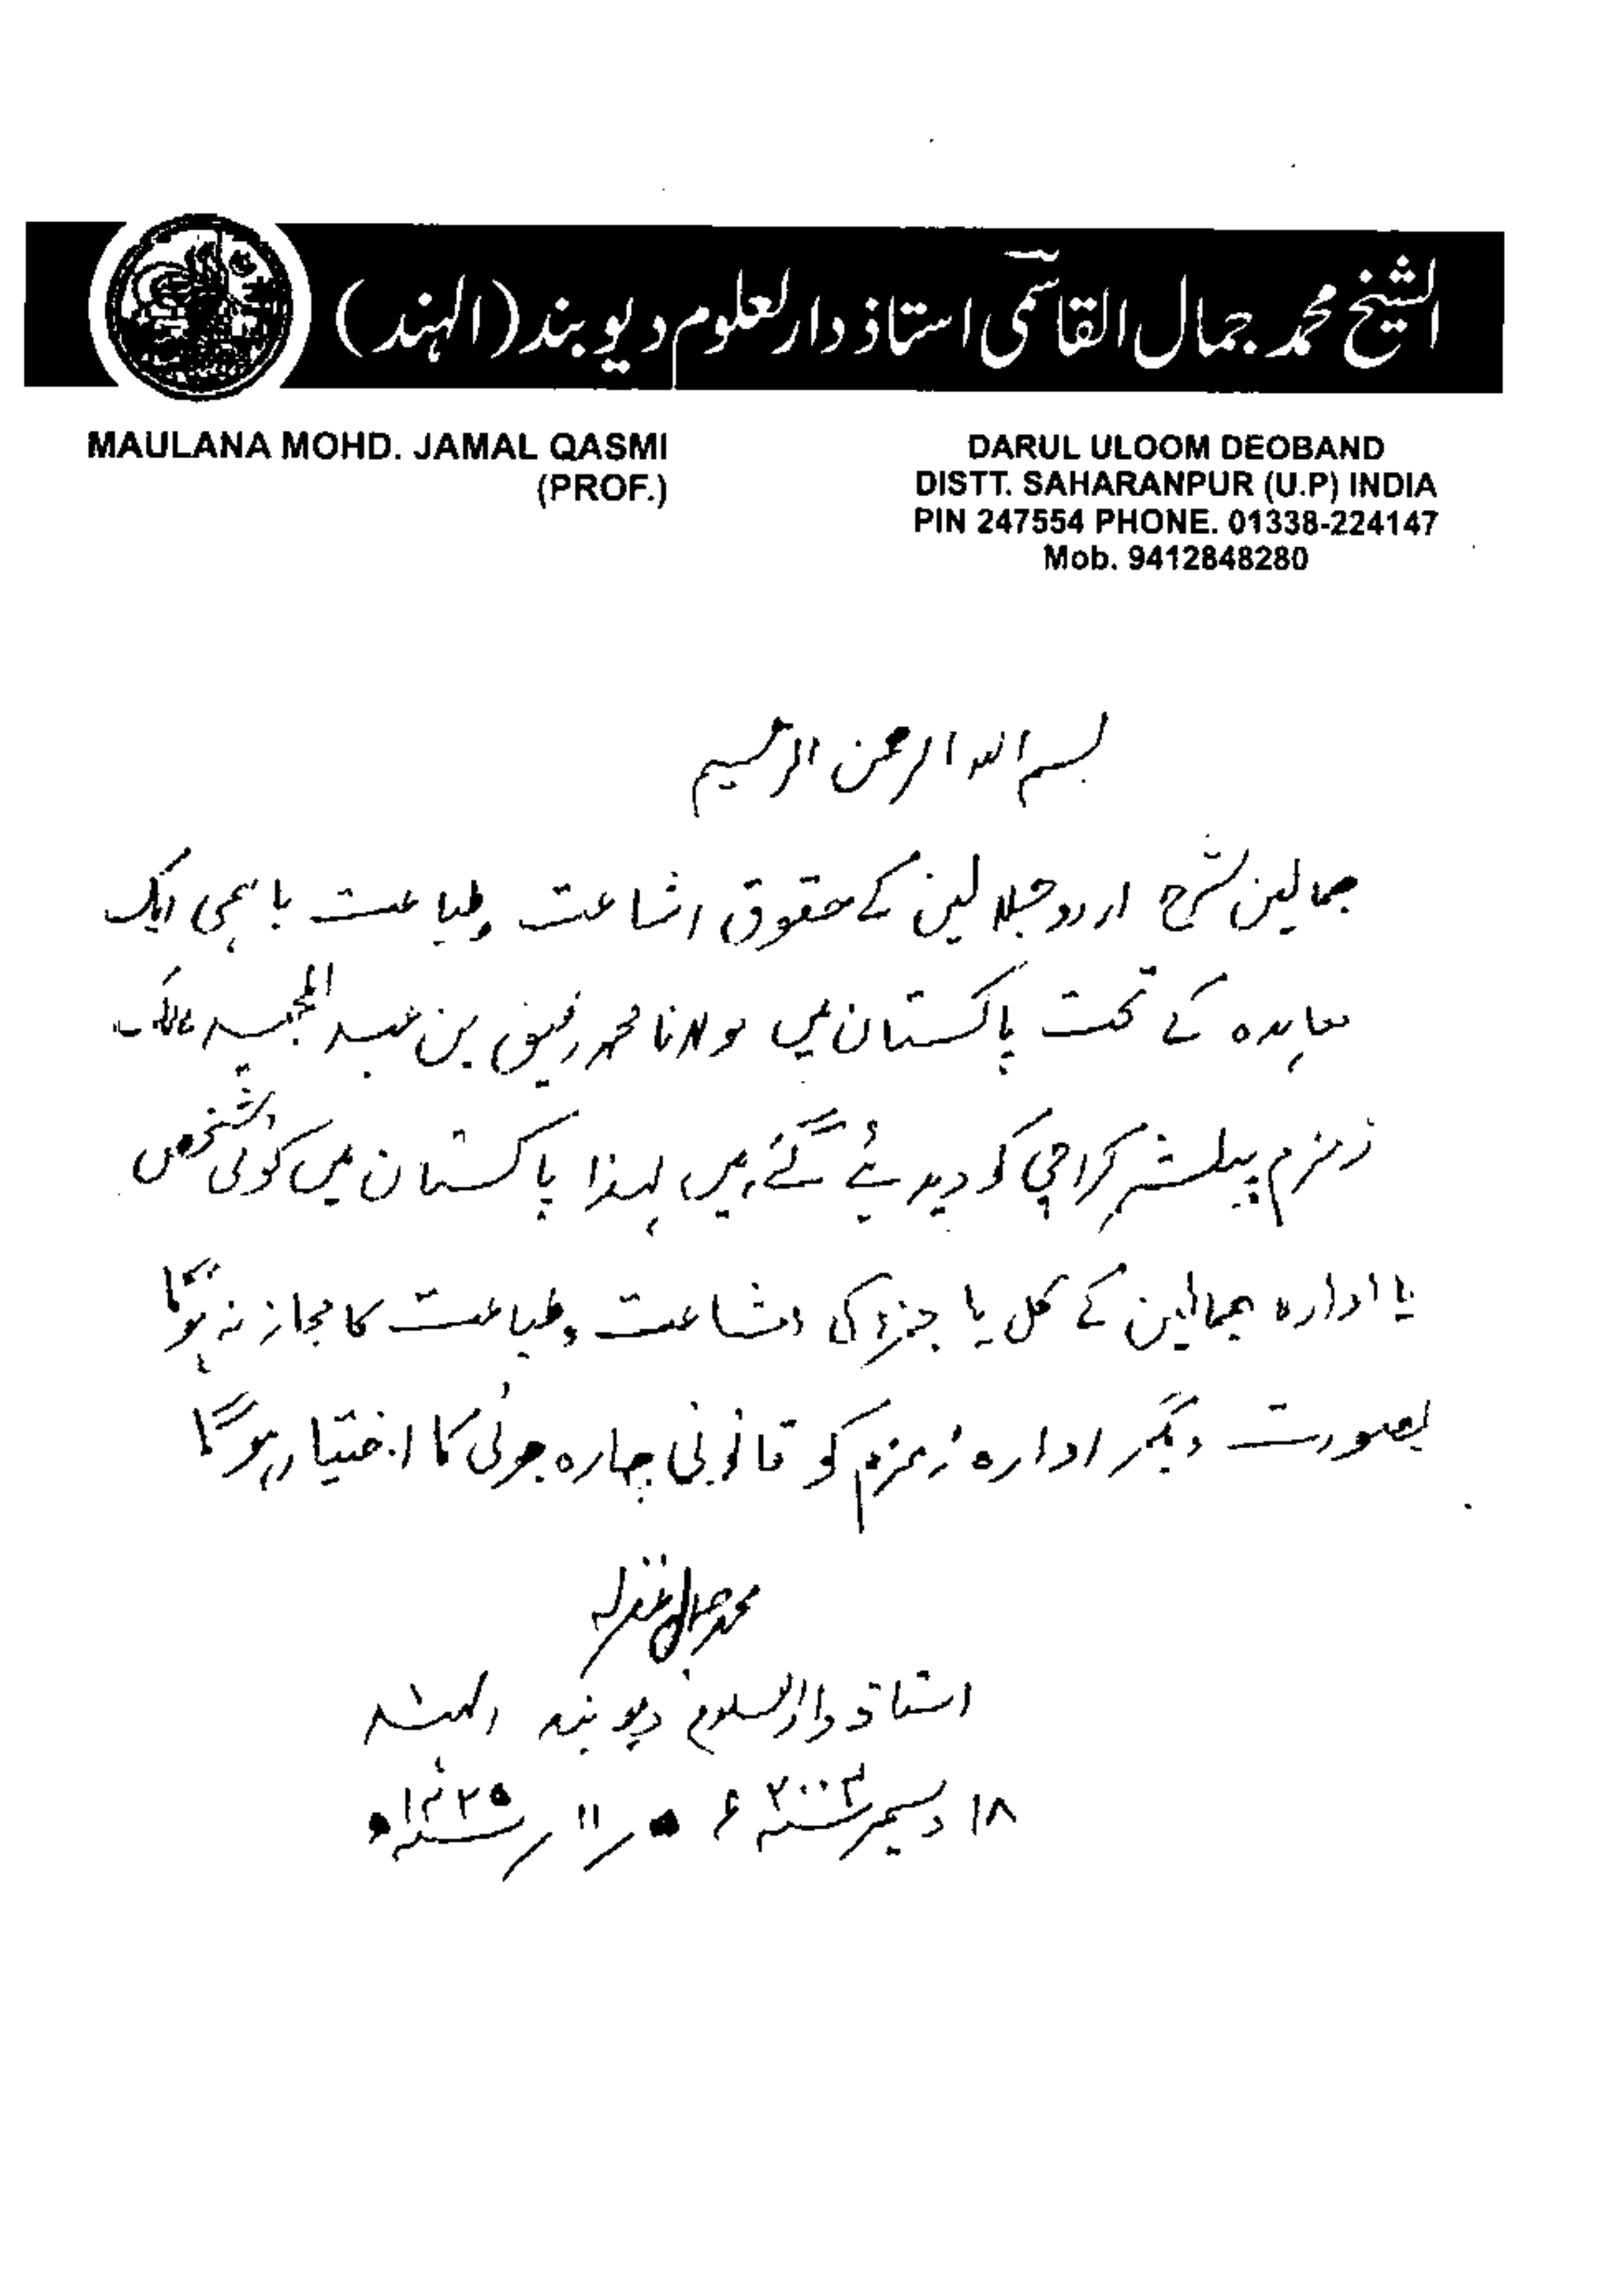 الشیخ محمد جمال القاسمی استاذ دارلعلوم دیوبند (الہند)
MAULANA MOHD. JAMAL QASMI
(PROF.)
DARUL ULOOM DEOBAND
DISTT. SAHARANPUR (U.P) INDIA
PIN 247554 PHONE. 01338-224147
Mob. 9412848280
بسم اللہ الرحمن الرحیم
جمالین شرح اردو جلالین کے حقوق اشاعت وطباعت باہمی ایک
معاہدہ کے تحت پاکستان میں مولانا محمد رفیق بن عبد المجید مالک
زمزم پبلشر کراچی کو دیدیئے گئے ہیں لہذا پاکستان میں کوئی شخص
یا ادارہ جمالین کے کل یا جزء کی اشاعت وطباعت کا مجاز نہ ہوگا
بصورت دیگر ادارہ زمزم کو قانونی چارہ جوئی کا اختیار ہوگا
محمد جمال غفرلہ
استاذ دارالعلوم دیوبند الہند
۱۸ دسمبر ۲۰۰۳ء